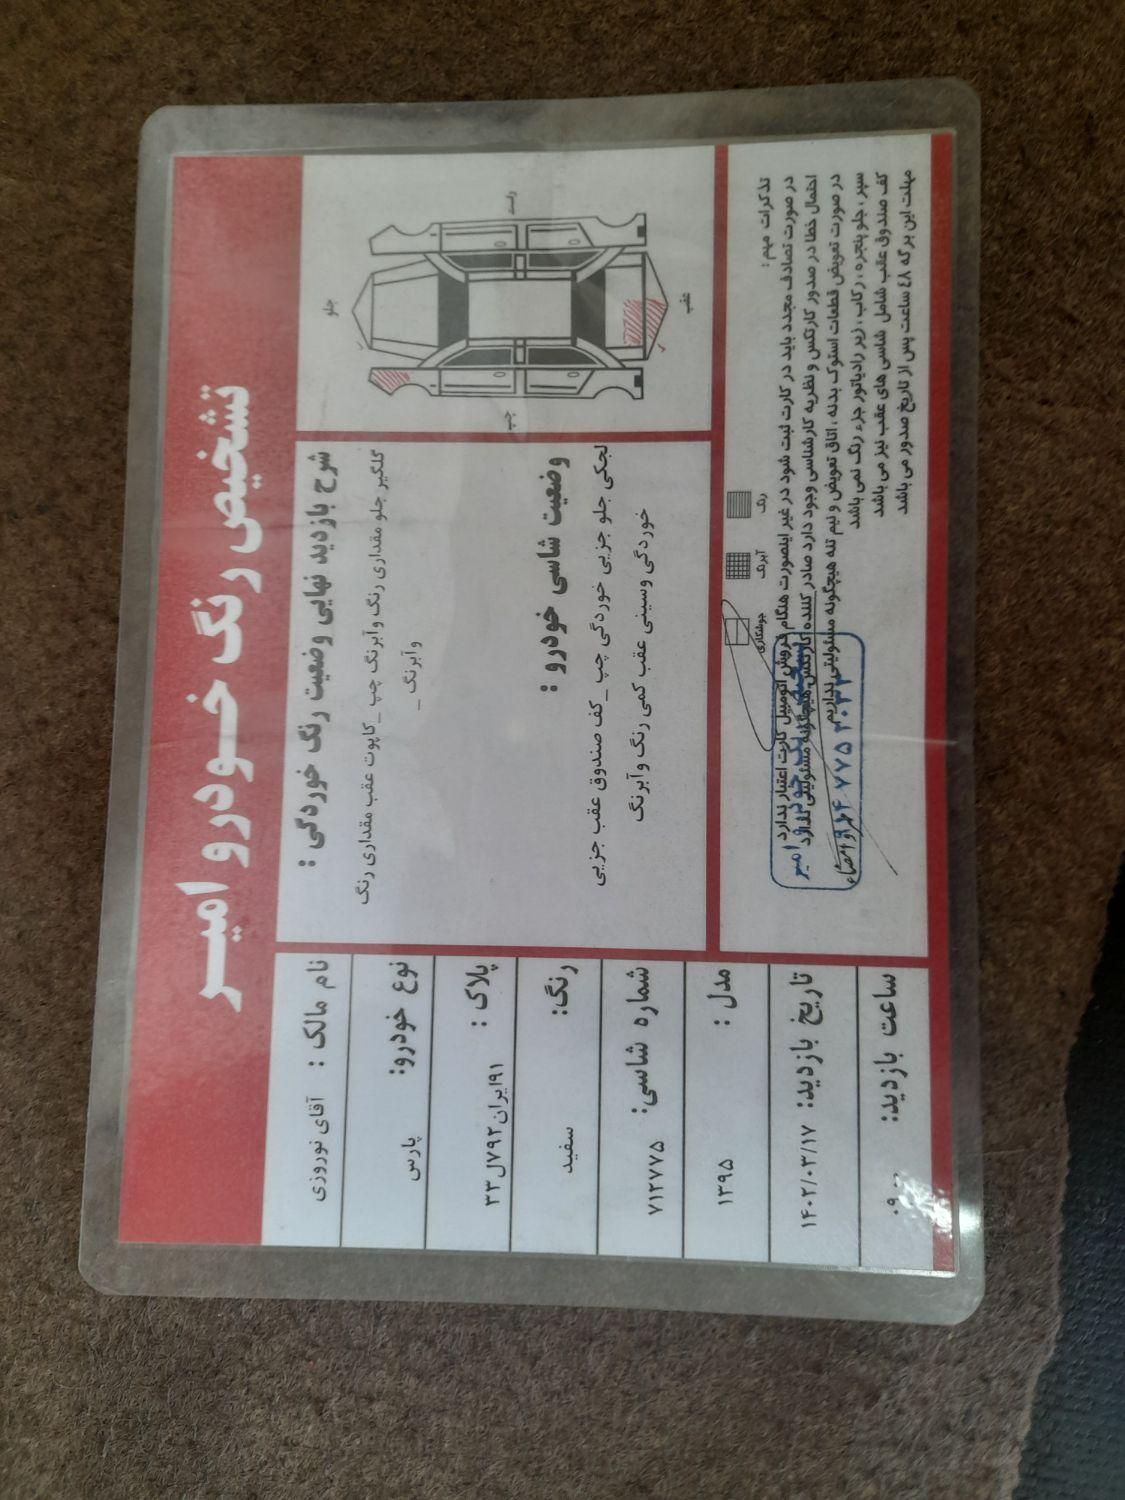 تشخیص رنگ خودرو امیر
نام مالک : آقای نوروزی
نوع خودرو: پارس
پلاک : ۱۹ایران۷۹۲ل۳۳
رنگ: سفید
شماره شاسی: ۷۱۲۷۷۵
مدل : ۱۳۹۵
تاریخ بازدید: ۱۴۰۲/۰۳/۱۷
ساعت بازدید: ۰۹:۰۰
شرح بازدید نهایی وضعیت رنگ خوردگی :
گلگیر جلو مقداری رنگ وآبرنگ چپ _کاپوت عقب مقداری رنگ
وآبرنگ _
وضعیت شاسی خودرو :
لچکی جلو جزیی خوردگی چپ _کف صندوق عقب جزیی
خوردگی وسینی عقب کمی رنگ وآبرنگ
راست
جلو
عقب
چپ
رنگ
آبرنگ
جوشکاری
تذکرات مهم :
در صورت تصادف مجدد باید در کارت ثبت شود در غیر اینصورت هنگام فروش اتومبیل کارت اعتبار ندارد
احتمال خطا در صدور کارتکس و نظریه کارشناسی وجود دارد صادر کننده کارتکس هیچگونه مسئولیتی ندارد
در صورت تعویض قطعات استوک بدنه ، اتاق تعویض و نیم تنه هیچگونه مسئولیتی نداریم
سپر ، جلو پنجره ، رکاب ، زیر رادیاتور جزء رنگ نمی باشد
کف صندوق عقب شامل شاسی های عقب نیز می باشد
مهلت این برگه ۴۸ ساعت پس از تاریخ صدور می باشد
مهر و امضاء
تشخیص رنگ خودرو امیر